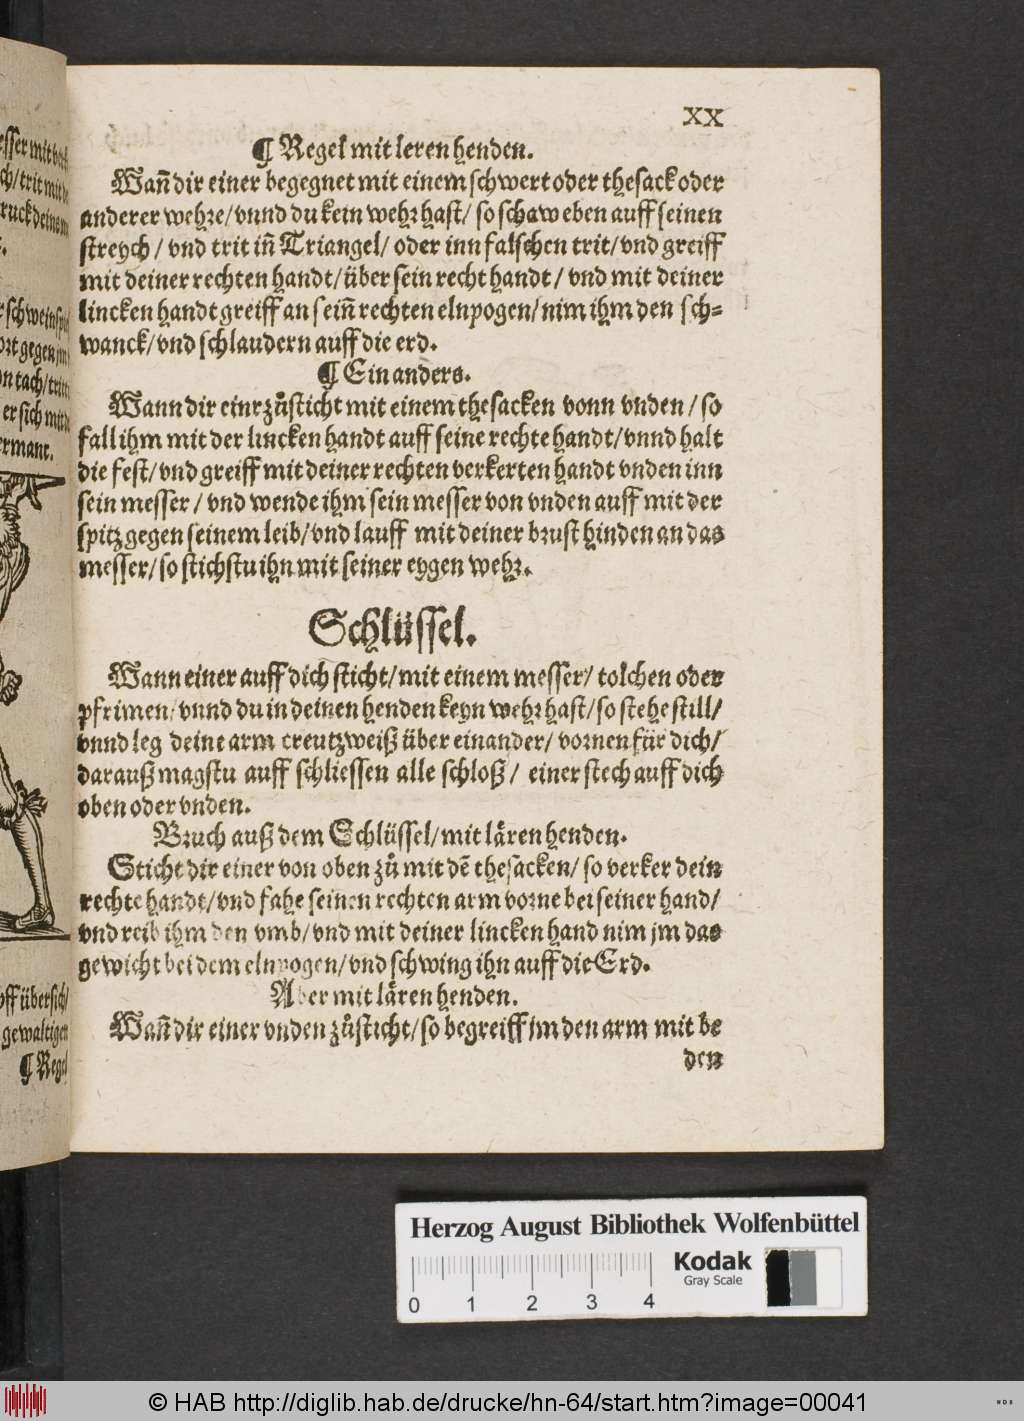 XX
¶ Regel mit leren henden.
Wañ dir einer begegnet mit einem schwert oder thesack oder
anderer wehre/ vnnd du kein wehr hast/ so schaw eben auff seinen
streych/ vnd trit iñ Triangel/ oder inn falschen trit/ vnd greiff
mit deiner rechten handt/ über sein recht handt/ vnd mit deiner
lincken handt greiff an seiñ rechten elnpogen/ nim ihm den sch=
wanck/ vnd schlaudern auff die erd.
¶ Ein anders.
Wann dir einr zůsticht mit einem thesacken vonn vnden/ so
fall ihm mit der lincken handt auff seine rechte handt/ vnnd halt
die fest/ vnd greiff mit deiner rechten verkerten handt vnden inn
sein messer/ vnd wende ihm sein messer von vnden auff mit der
spitz gegen seinem leib/ vnd lauff mit deiner brust hinden an das
messer/ so stichstu ihn mit seiner eygen wehr.
Schlüssel.
Wann einer auff dich sticht/ mit einem messer/ tolchen oder
pfrimen/ vnnd du in deinen henden keyn wehr hast/ so stehe still/
vnnd leg deine arm creutzweiß über einander/ vornen für dich/
darauß magstu auff schliessen alle schloß/ einer stech auff dich
oben oder vnden.
Bruch auß dem Schlüssel/ mit lären henden.
Sticht dir einer von oben zů mit dē thesacken/ so verker dein
rechte handt/ vnd fahe seinen rechten arm vorne bei seiner hand/
vnd reib ihm den vmb/ vnd mit deiner lincken hand nim jm das
gewicht bei dem elnpogen/ vnd schwing ihn auff die Erd.
Aber mit lären henden.
Wañ dir einer vnden zůsticht/ so begreiff jm den arm mit be
den
esser mit
ch/ trit mit
ruck deine
schweinspi
ort gegen
on tach/
er sich mit
ermant.
übersich/
gewaltigen
¶ Regel
Herzog August Bibliothek Wolfenbüttel
Kodak
Gray Scale
0 1 2 3 4
© HAB http://diglib.hab.de/drucke/hn-64/start.htm?image=00041